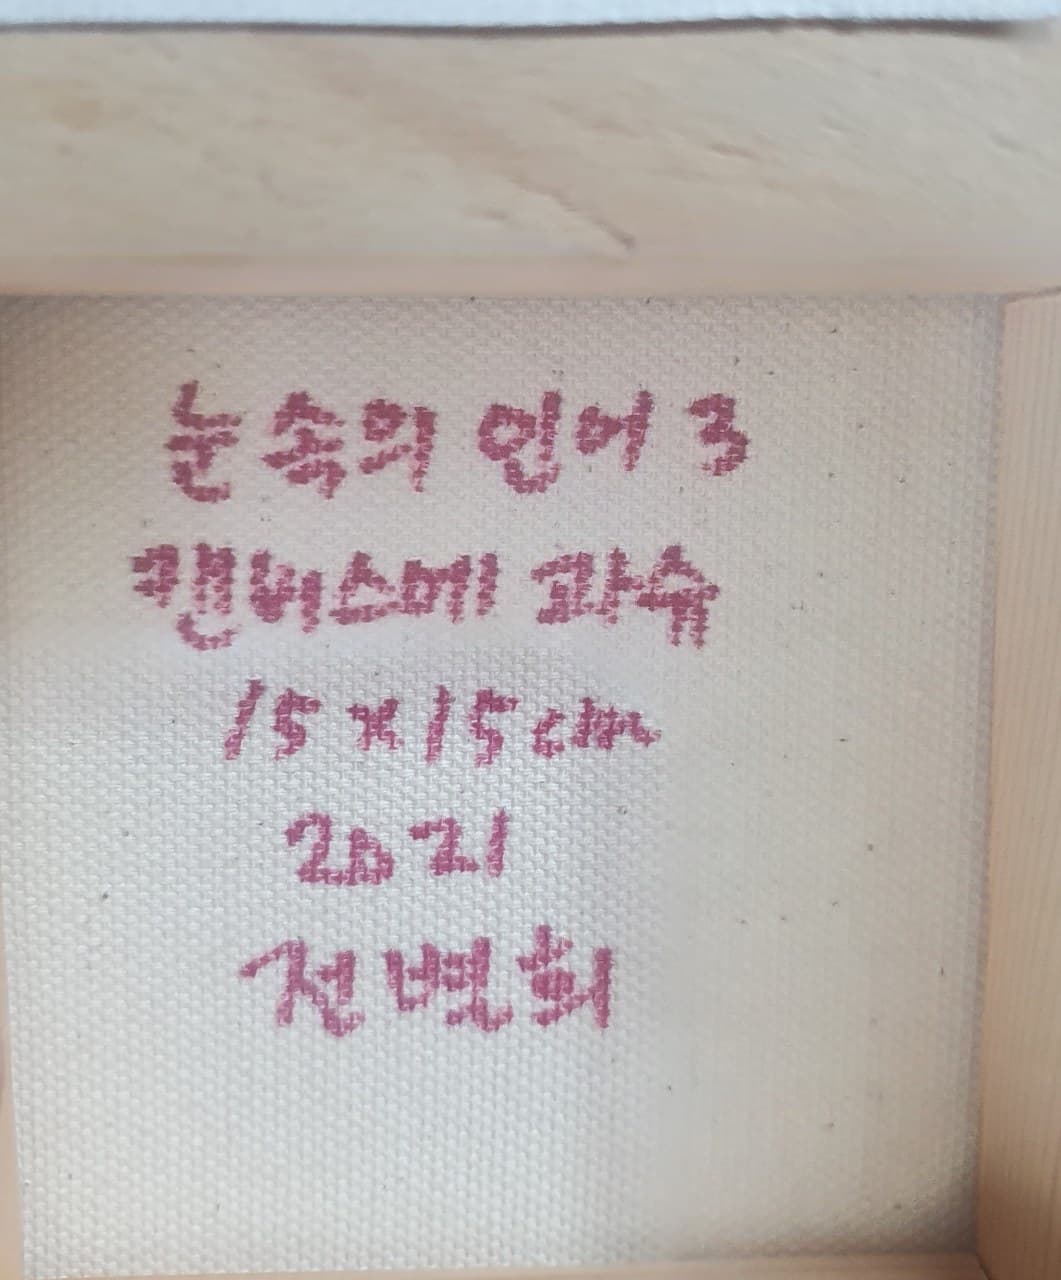 눈속의 언어 3
캔버스에 과슈
15x15cm
2021
전병희